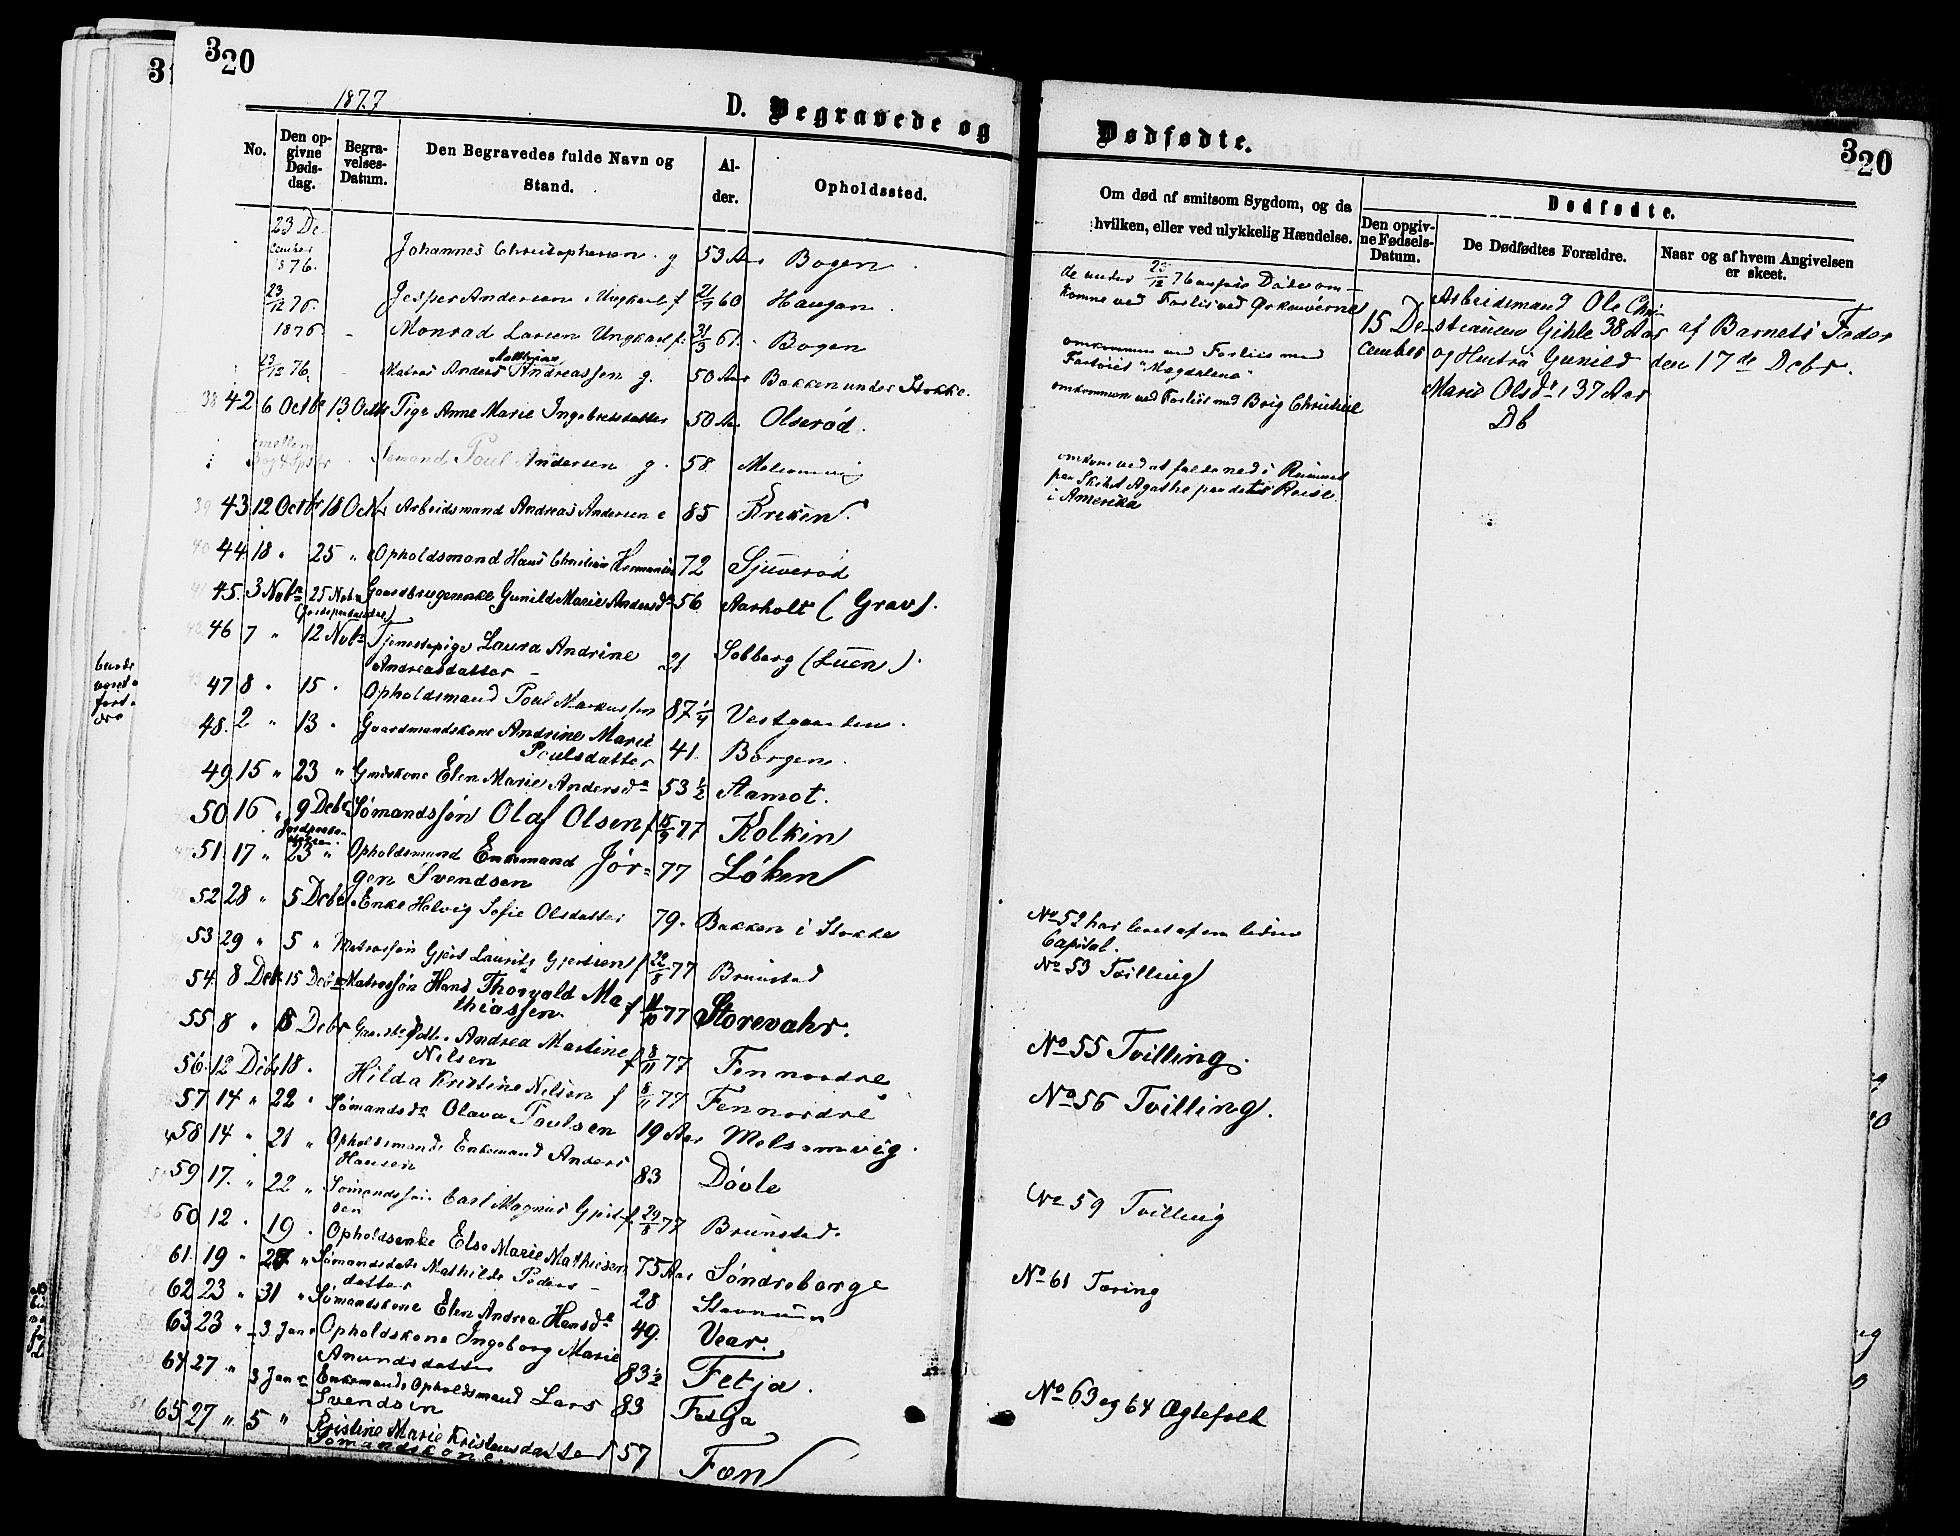 320
1877
D. Begravede og
Dødfødte.
320
No.
Den op-
givne
Døds-
dag.
Begra-
velses-
Datum.
Den Begravedes fulde Navn og
Stand.
Al-
der.
Opholdssted.
Om død af smitsom Sygdom, og da
hvilken, eller ved ulykkelig Hændelse.
Dødfødte.
Den opgiv-
ne Fødsels-
Datum.
De Dødfødtes Forældre.
Naar og af hvem Angivelsen
er skeet.
23 De-
cember
876. Johannes Christophersen g 53 Aar Bogen
23/12 76. Jesper Andersen Ungkarl f 60 Haugan
1876 Monrad Larsen Ungkarl f. 31/3 61. Bogen
23/12 76. Matros Anders Mathias Andreassen g. 50 Aar Bakken under Stokke.
38 42 6 Octbr 13 Octbr Pige Anne Marie Ingebretsdatter 50 Aar Olserød.
mellem
Sømand Poul Andersen g. 58
39 43 12 Octbr 18 Octbr Arbeidsmand Andreas Andersen 85 Kreken.
40 44 18 " 25 " Opholdsmand Hans Christian 72 Sjuverød
41 45. 3 Novbr 25 Novbr Gaardbrugerenke Gunild Marie Andersdr 56 Aarholt (Grav).
46 7 " 12 Novbr Tjenestepige Laura Andrine
Andreasdatter 21 Solberg (Luen).
47 8 " 15 " Opholdsmand Poul Markussen 87 1/4 Vestgaarden.
48. 2 " 13 " Gaardmandskone Andrine Marie
Poulsdatter 41. Borgen.
49 15 " 23 " Gmdskone Elen Marie Andersdr 53 1/2 Aamot.
50 16 " 9 Debr Sømandssøn Olaf Olsen f 15/9 77 Kolkin
51. 17 " 23 " Opholdsmand Enkemand Jør-
gen Svendsen 77 Løken
52 28 " 5 Debr Enke Helvig Sofie Olsdatter 79. Bakken i Stokke
53 29 " 5 " Matrossøn Gjert Laurits Gjertsen f 22/8 77 Brunstad
54. 8 Debr 15 Debr Matrossøn Hans Thorvald Ma-
thiassen f 11/10 77 Storevahr.
55 8 " 18 Debr Andrea Martine
Nilsen f 8/11 77 Fen nordre
56. 12 Debr 18. Hilda Kristine Nilsen f 8/11 77 Fen nordre
57 14 " 22 " Sømandsdr Olava Poulsen 19 Aar Melsomvig.
58 14 " 21 " Opholdsmand Enkemand Anders
Hansen 83 Døvle
59 17. " 22 " Sømandssøn Carl Magnus Gjert-
sen f. 29/8 77 Brunstad.
60 12 " 19 " Opholdsenke Else Marie Mathiesen 75 Aar Søndre borge
61. 19 " Sømandsdatr Mathilde Peders-
datter 28 Stavnum
62 23 " 31 " Sømandskone Elen Andrea Hansdr 49. Vear.
63 23 " 3 Janr Opholdskone Ingeborg Marie
Amundsdatter 83 1/2 Fetja.
64 27 " 3 Janr Enkemand Opholdsmand Lars
Svendsen 83 Fetja
61 65 27 " 5 " Kristine Marie Kristensdatter 57 Fæn
Sømandskone.
de under 23/12 76 anførte Døde om-
komne ved Forlis ved Ørkenøerne
omkommen ved Forliis med
Fartøiet "Magdalena"
omkommen ved Forliis med Brig Christine
omkom ved at falde ned i Rummet
paa Skibet Agathe paa dets Reise
i Amerika
15 De-
cember
Arbeidsmand Ole Chri-
stiansen Gihle 38 Aar
og Hustru Gunild
Marie Olsdr 37 Aar
Db
af Barnets Fader
den 17de Debr.
No 52 har levet af en liden
Capital.
No 53 Tvilling
No 55 Tvilling.
No 56 Tvilling.
No 59 Tvilling
No 61 Tæring
No 63 og 64 Ægtefolk